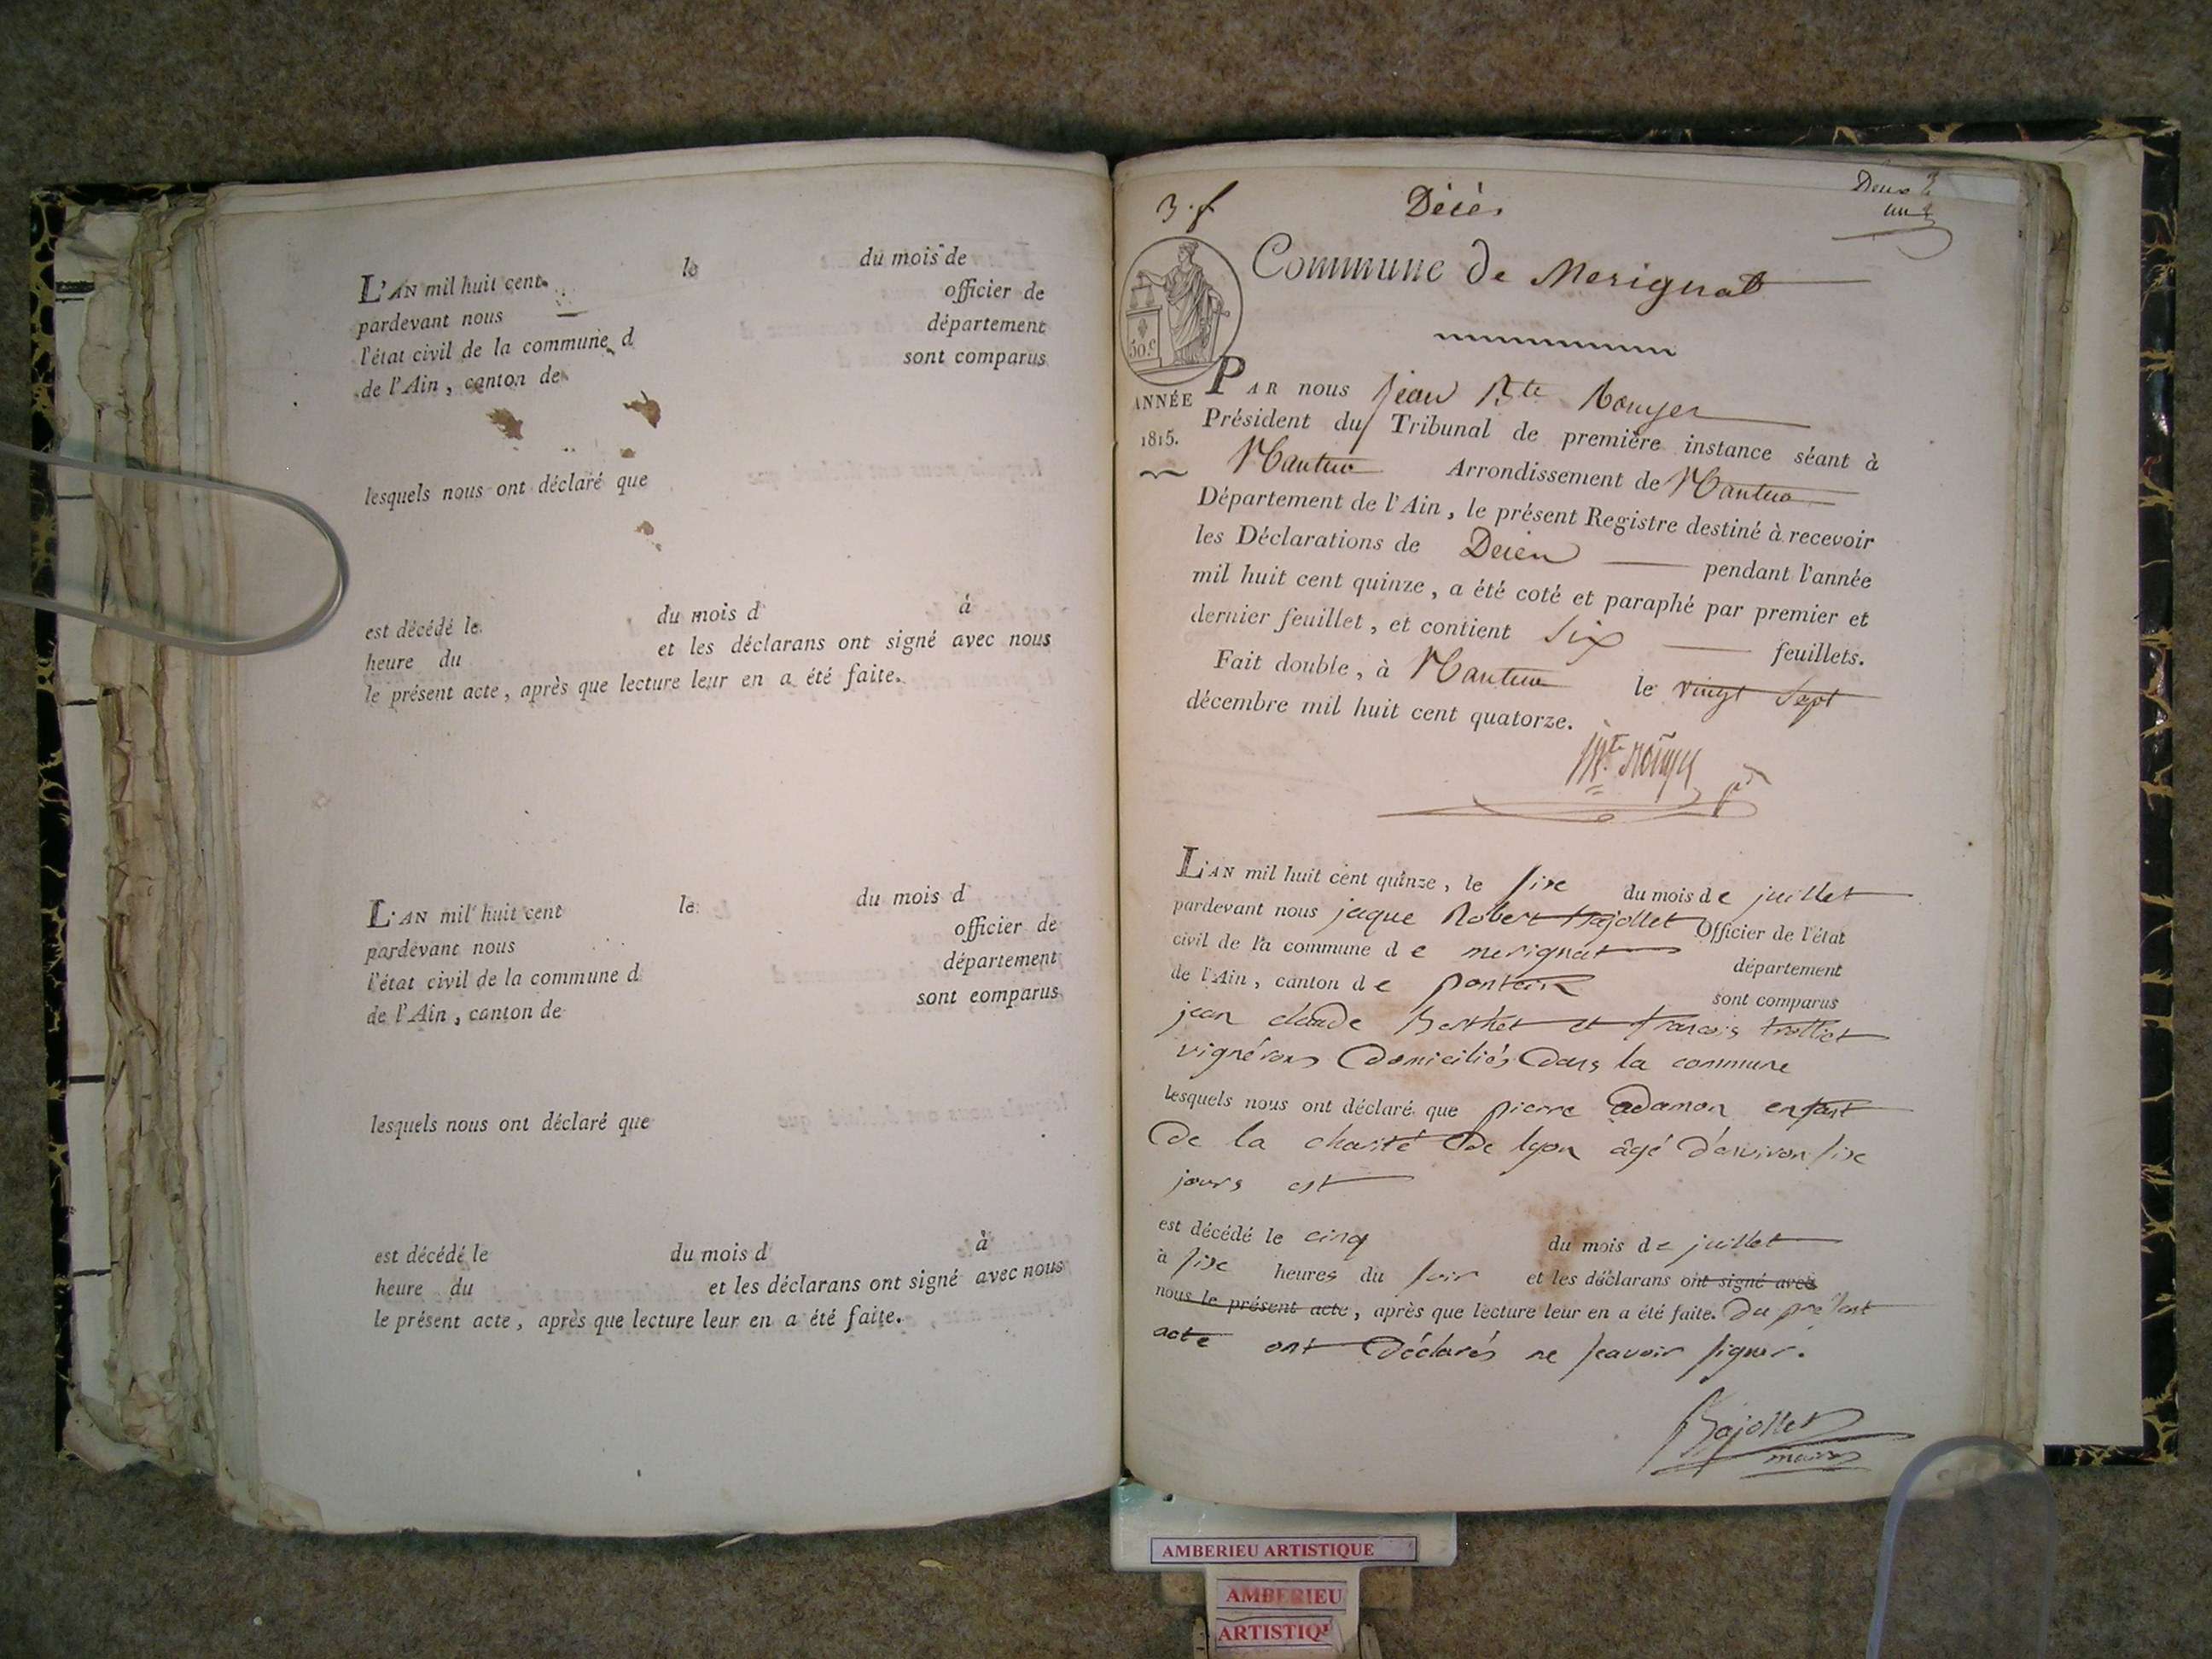 L'AN mil huit cent le du mois de
pardevant nous officier de
l'état civil de la commune d département
de l'Ain, canton de sont comparus
lesquels nous ont déclaré que
est décédé le du mois d à
heure du et les déclarans ont signé avec nous
le présent acte, après que lecture leur en a été faite.
L'AN mil huit cent le du mois d
pardevant nous officier de
l'état civil de la commune d département
de l'Ain, canton de sont comparus
lesquels nous ont déclaré que
est décédé le du mois d à
heure du et les déclarans ont signé avec nous
le présent acte, après que lecture leur en a été faite.
3. f Décès
Commune de Merignat
50.c
ANNÉE
1815.
PAR nous Jean Bte Rouyer
Président du Tribunal de première instance séant à
Nantua Arrondissement de Nantua
Département de l'Ain, le présent Registre destiné à recevoir
les Déclarations de Décès pendant l'année
mil huit cent quinze, a été coté et paraphé par premier et
dernier feuillet, et contient six feuillets.
Fait double, à Nantua le vingt sept
décembre mil huit cent quatorze.
L'AN mil huit cent quinze, le sixe du mois de juillet
pardevant nous jaque Robert Bajollet Officier de l'état
civil de la commune de merignat département
de l'Ain, canton de poncin sont comparus
jean claude Berthet et françois trolliet
vignérons domiciliés dans la commune
lesquels nous ont déclaré que pierre adamon enfant
de la charité de lyon âgé d'environ sixe
jours est
est décédé le cinq du mois de juillet
à sixe heures du soir et les déclarans ont signé avec
nous le présent acte, après que lecture leur en a été faite. du présent
acte ont déclarés ne scavoir signer.
Bajollet
maire
AMBERIEU ARTISTIQUE
AMBERIEU
ARTISTIQ